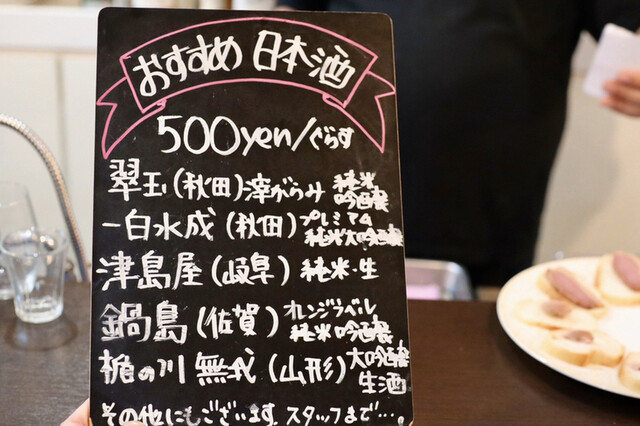 おすすめ 日本酒
500yen/ぐらす
翠玉(秋田)滓がらみ 純米吟醸
一白水成(秋田)プレミアム純米大吟醸
津島屋(岐阜)純米・生
鍋島(佐賀)オレンジラベル純米吟醸
楯の川 無我(山形)大吟醸生酒
その他にもございます。スタッフまで…。